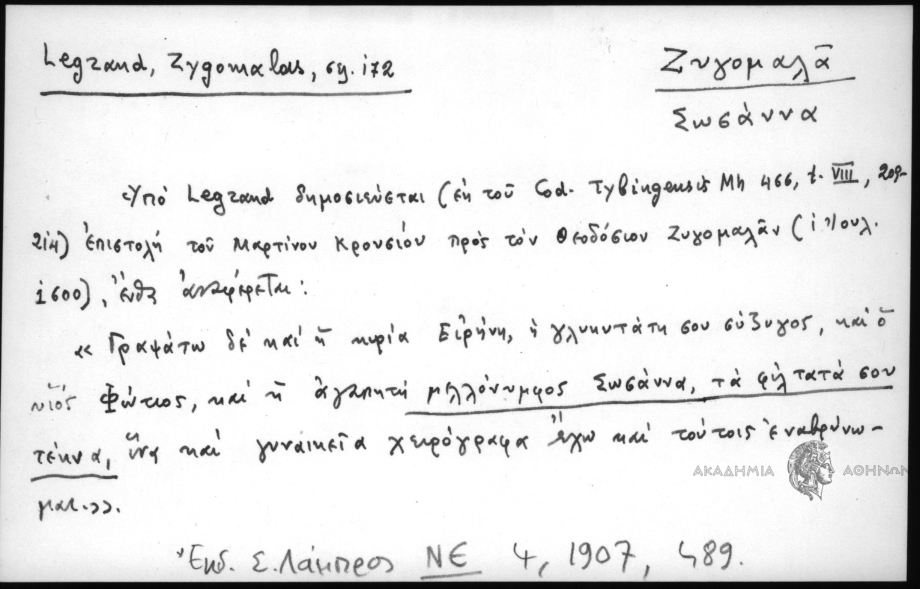 Legrand, Zygomalas, σελ. 172
Ζυγομαλᾶ
Σωσάννα
Ὑπό Legrand δημοσιεύεται (ἐκ τοῦ Cod. Tybingensis Mh 466, t. VIII, 209-
214) ἐπιστολή τοῦ Μαρτίνου Κρουσίου πρός τόν Θεοδόσιον Ζυγομαλᾶν (1 Ἰουλ.
1600), ἔνθα ἀναφέρεται:
« Γραψάτω δέ καί ἡ κυρία Εἰρήνη, ἡ γλυκυτάτη σου σύζυγος, καί ὁ
υἱός Φώτιος, καί ἡ ἀγαπητή μελλόνυμφος Σωσάννα, τά φίλτατά σου
τέκνα, ἵνα καί γυναικεῖα χειρόγραφα ἔχω καί τούτοις ἐναβρύνω-
μαι.».
ΑΚΑΔΗΜΙΑ ΑΘΗΝΩΝ
Ἐκδ. Σ. Λάμπρος ΝΕ 4, 1907, 489.